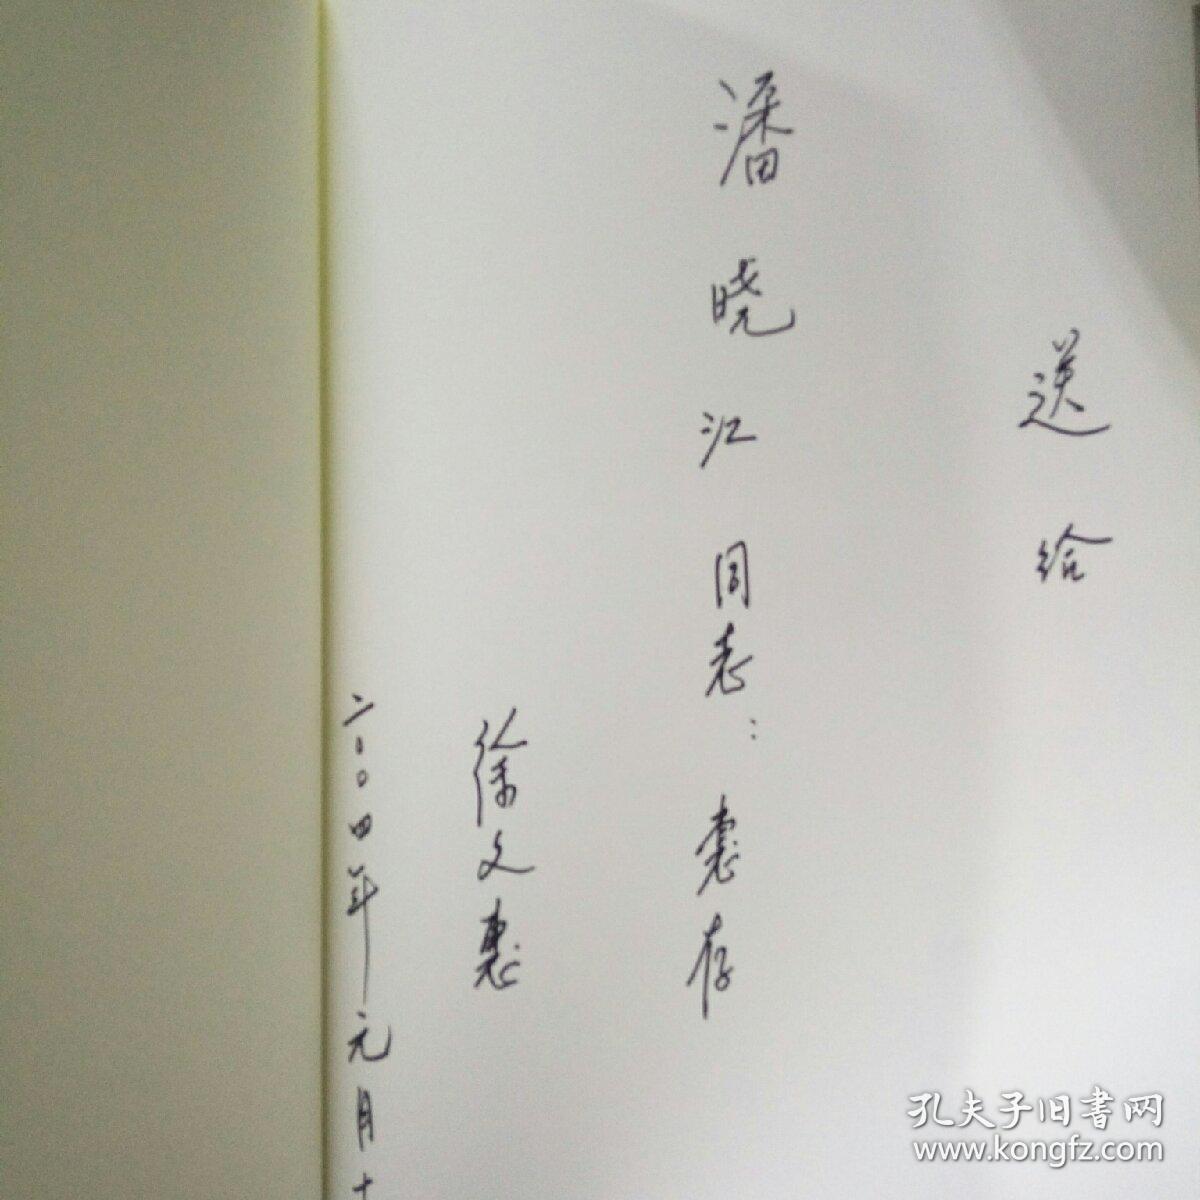 送给
潘晓江同志：惠存
徐文惠
二〇〇四年元月十
孔夫子旧書网
www.kongfz.com